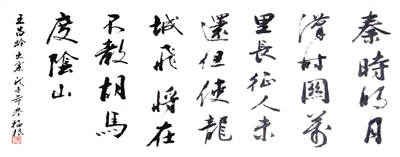 秦時明月
漢時關萬
里長征人未
還但使龍
城飛將在
不教胡馬
度陰山
王昌齡出塞戊子